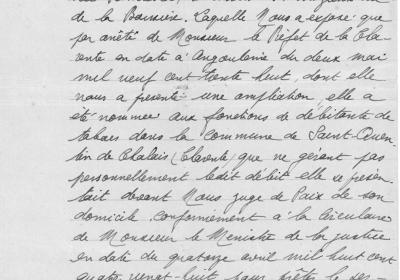 de la Bouvière. Laquelle Nous a exposé que
par arrêté de Monsieur le Préfet de la Cha
rente en date à Angoulême du deux mai
mil neuf cent trente huit, dont elle
nous a présenté une ampliation, elle a
été nommée aux fonctions de débitante de
tabacs dans la commune de Saint-Quen
tin de Chalais (Charente) que ne gérant pas
personnellement ledit débit elle se présen
tait devant Nous juge de Paix de son
domicile conformément à la circulaire
de Monsieur le Ministre de la justice
en date du quatorze avril mil huit cent
quatre vingt-huit pour prêter le ser-